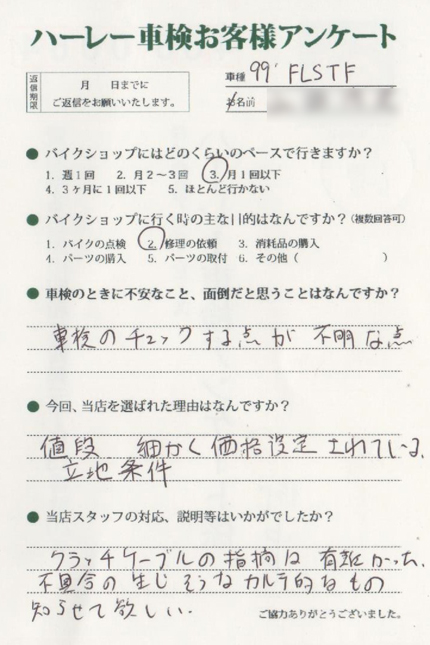 ハーレー車検お客様アンケート
返信期限
月 日までに
ご返信をお願いいたします。
車種 99' FLSTF
お名前
● バイクショップにはどのくらいのペースで行きますか？
1. 週1回 2. 月2〜3回 3. 月1回以下
4. 3ヶ月に1回以下 5. ほとんど行かない
● バイクショップに行く時の主な目的はなんですか？(複数回答可)
1. バイクの点検 2. 修理の依頼 3. 消耗品の購入
4. パーツの購入 5. パーツの取付 6. その他( )
● 車検のときに不安なこと、面倒だと思うことはなんですか？
車検のチェックする点が不明な点
● 今回、当店を選ばれた理由はなんですか？
値段 細かく価格設定されている、
立地条件
● 当店スタッフの対応、説明等はいかがでしたか？
クラッチケーブルの指摘は有難かった、
不具合の生じそうなカルテ的なもの
知らせて欲しい。
ご協力ありがとうございました。